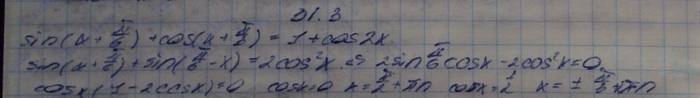 31.3
sin(x + π/6) + cos(x + π/3) = 1 + cos2x
sin(x + π/6) + sin(π/6 - x) = 2cos²x ⇔ 2sin π/6 cosx - 2cos²x = 0
cosx(1 - 2cosx) = 0 cosx = 0 x = π/2 + πn cosx = 1/2 x = ± π/3 + πn